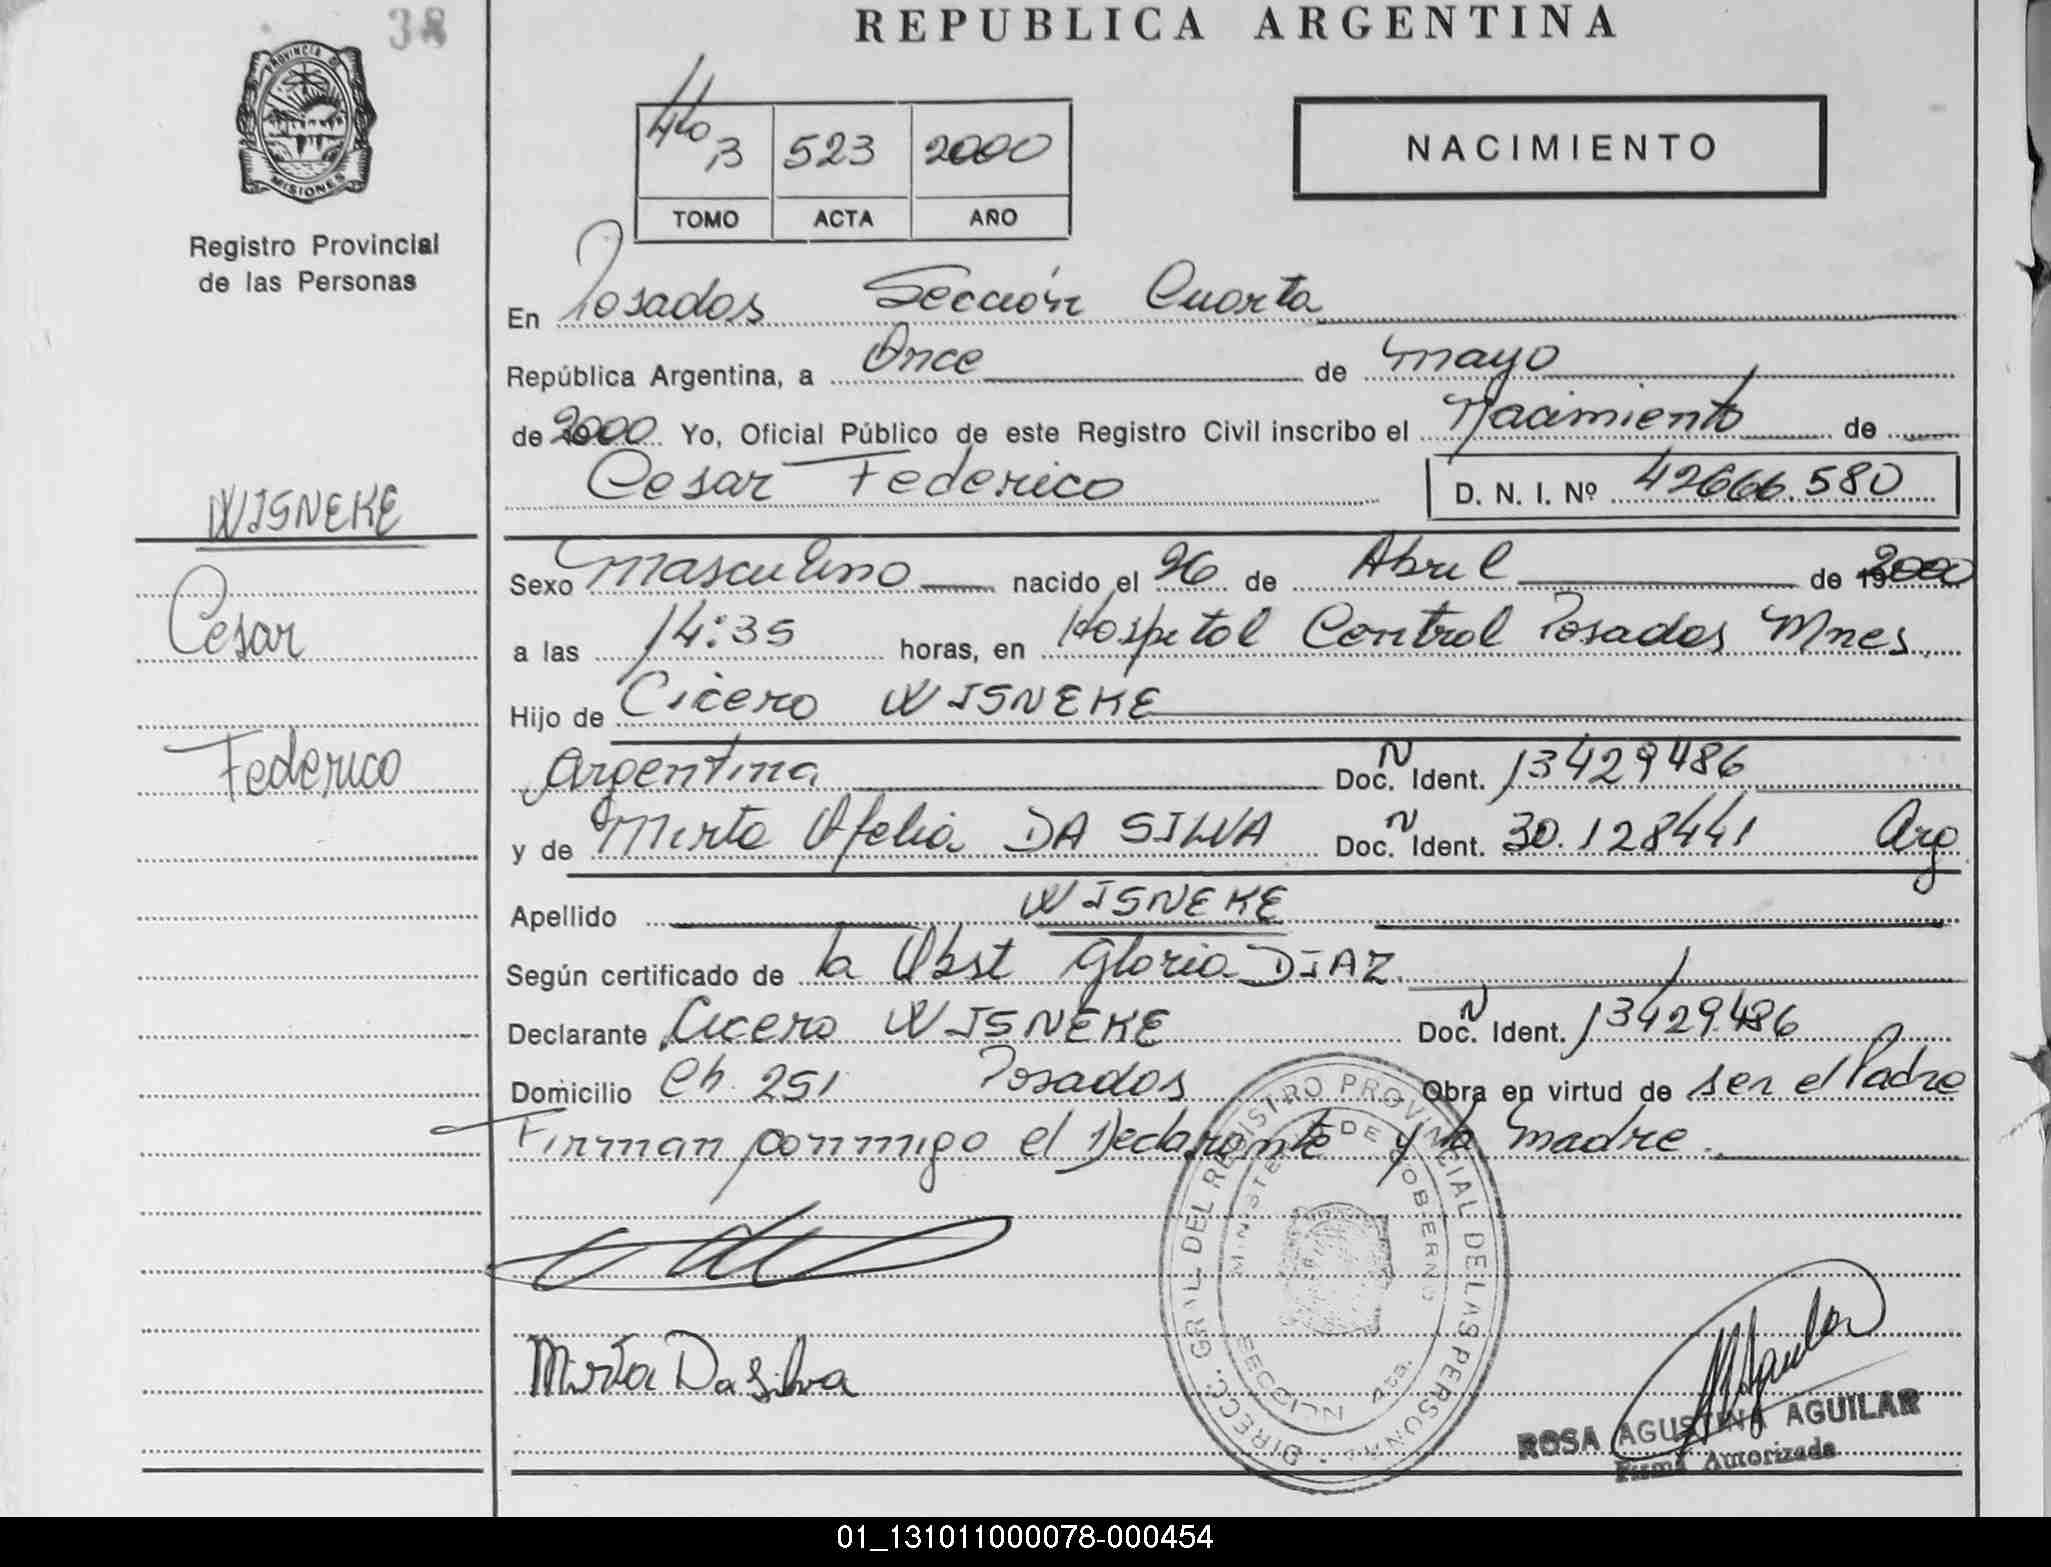 38
REPUBLICA ARGENTINA
PROVINCIA DE MISIONES
Registro Provincial
de las Personas
4to 3 523 2000
TOMO ACTA AÑO
NACIMIENTO
En Posadas Sección Cuarta
República Argentina, a Once de Mayo
de 2000 Yo, Oficial Público de este Registro Civil inscribo el Nacimiento de
Cesar Federico D. N. I. Nº 42666.580
WISNEKE
Cesar
Federico
Sexo Masculino nacido el 26 de Abril de 2000
a las 14:35 horas, en Hospital Central Posadas Mnes.
Hijo de Cicero WISNEKE
Argentina Doc. N Ident. 13429486
y de Mirta Ofelia DA SILVA Doc. N Ident. 30.128441 Arg
Apellido WISNEKE
Según certificado de la Obst Gloria DIAZ.
Declarante Cicero WISNEKE Doc. N Ident. 13429.486
Domicilio Ch. 251 Posadas Obra en virtud de ser el Padre
Firman conmigo el Declarante y la madre.
Mirta Da Silva
DIRECC. GRAL. DEL REGISTRO PROVINCIAL DE LAS PERSONAS
MINISTERIO DE GOBIERNO
SECCION 4ta.
ROSA AGUSTINA AGUILAR
Firma Autorizada
01_131011000078-000454